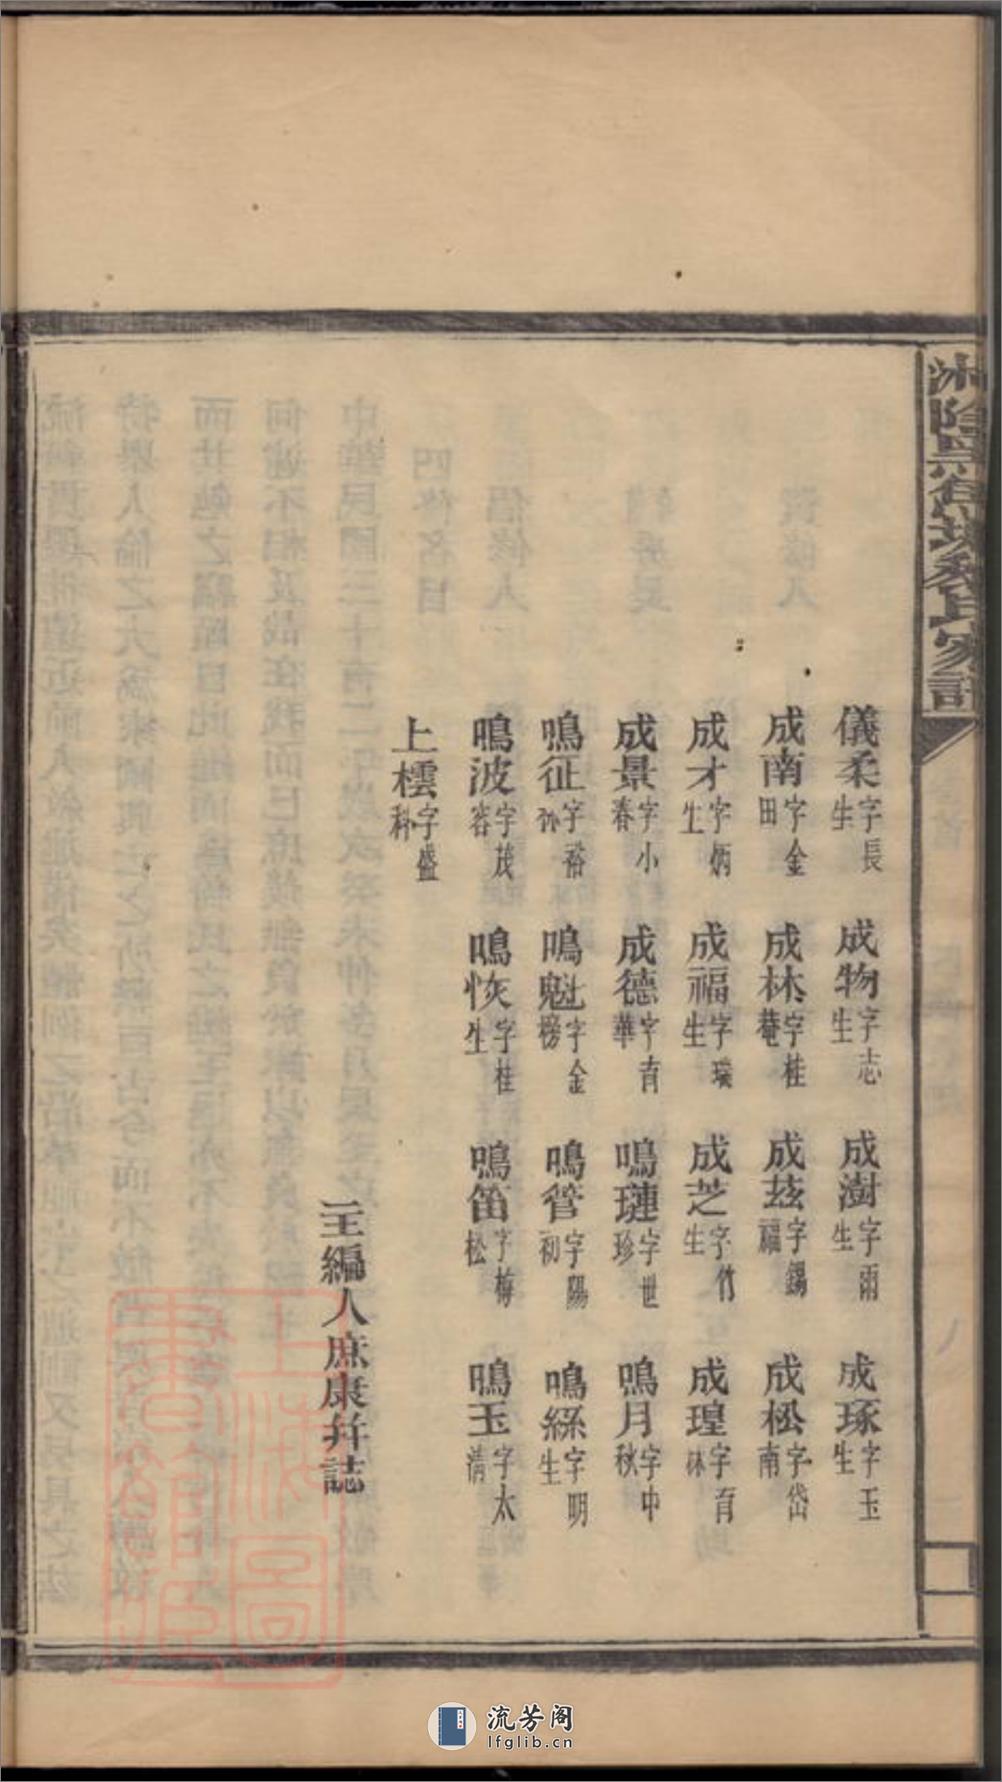 儀柔字長生 成物字志生 成澍字雨生 成琢字玉生
成南字金田 成林字桂菴 成茲字錫福 成松字岱南
成才字炳生 成福字瑞生 成芝字竹生 成瑝字育林
成景字小春 成德字育華 鳴璉字世珍 鳴月字中秋
鳴征字裕孫 鳴魁字金榜 鳴管字陽初 鳴絲字明生
鳴波字茂容 鳴恢字桂生 鳴笛字梅松 鳴玉字太清
上樰字盛科
主編人庶康幷誌
上海圖書館藏
流芳阁
lfglib.cn